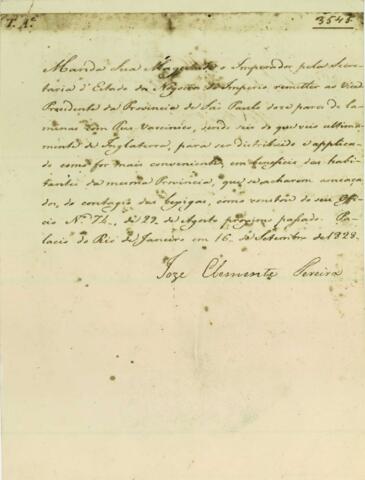 T. Aº. 3545
Manda Sua Magestade o Imperador pela Secre-
taria d'Estado dos Negocios do Imperio remetter ao Vice
Presidente da Provincia de São Paulo doze pares de la-
minas com Pus Vaccinico, sendo seis do que veio ultima-
mente de Inglaterra, para ser distribuido e applica-
do como for mais conveniente, em beneficio dos habi-
tantes da mesma Provincia, que se acharem ameaça-
dos do contagio das bexigas, como constou do seu Offi-
cio Nº 74, de 29 de Agosto proximo passado. Pa-
lacio do Rio de Janeiro em 16 de Setembro de 1828.
Joze Clemente Pereira